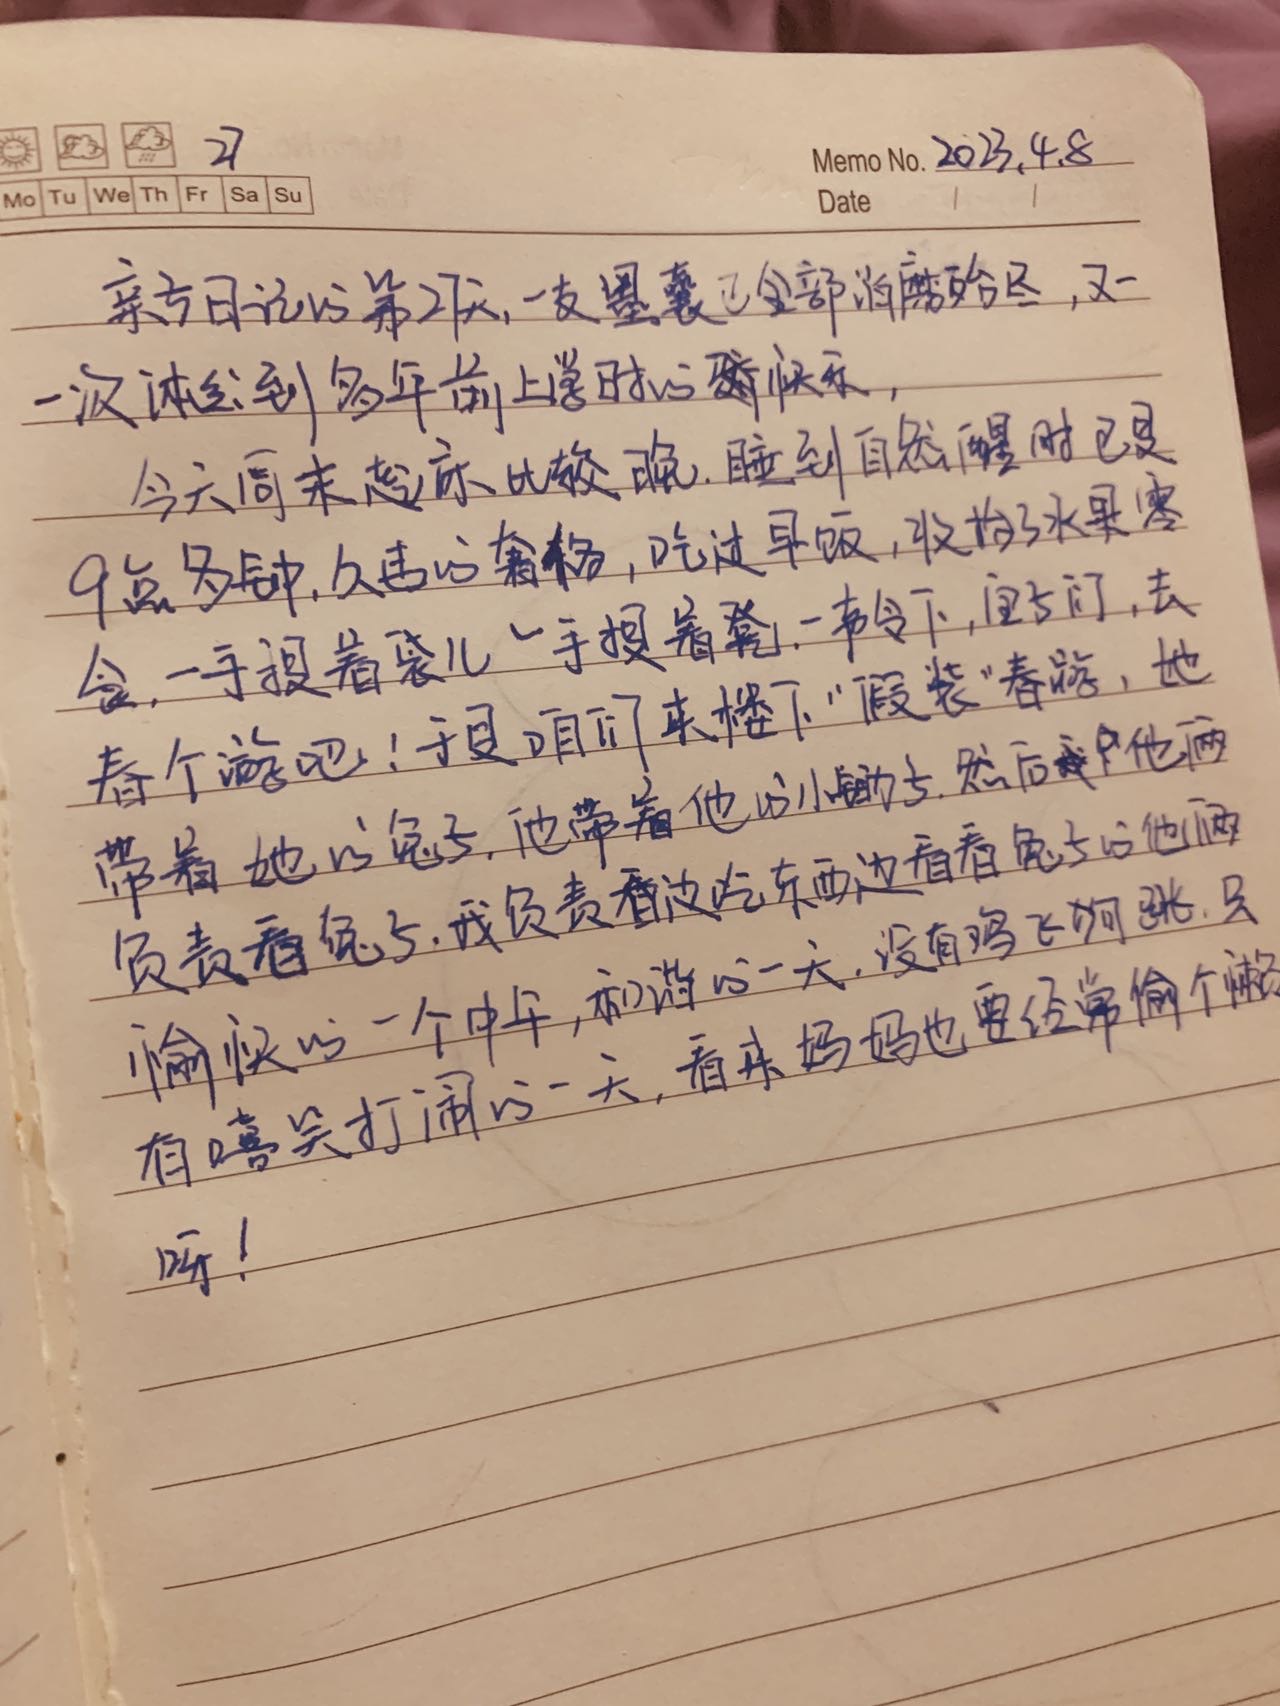 27
Memo No. 2023.4.8
Mo Tu We Th Fr Sa Su
Date / /
亲子日记的第27天,一支墨囊已全部消磨殆尽,又一
一次体会到多年前上学时的快乐,
今天周末起床比较晚.睡到自然醒时已是
9点多钟.久违的奢移,吃过早饭,收拾了水果零
食,一手提着袋儿一手提着凳.一声令下,宝子们,去
春个游吧!于是咱们来楼下"假装"春游,她
带着她的兔子.他带着他的小锄子.然后他俩
负责看兔子.我负责看边吃东西边看看兔子的他俩
愉快的一个中午,和谐的一天.没有鸡飞狗跳.只
有嘻笑打闹的一天,看来妈妈也要经常偷个懒
呀!